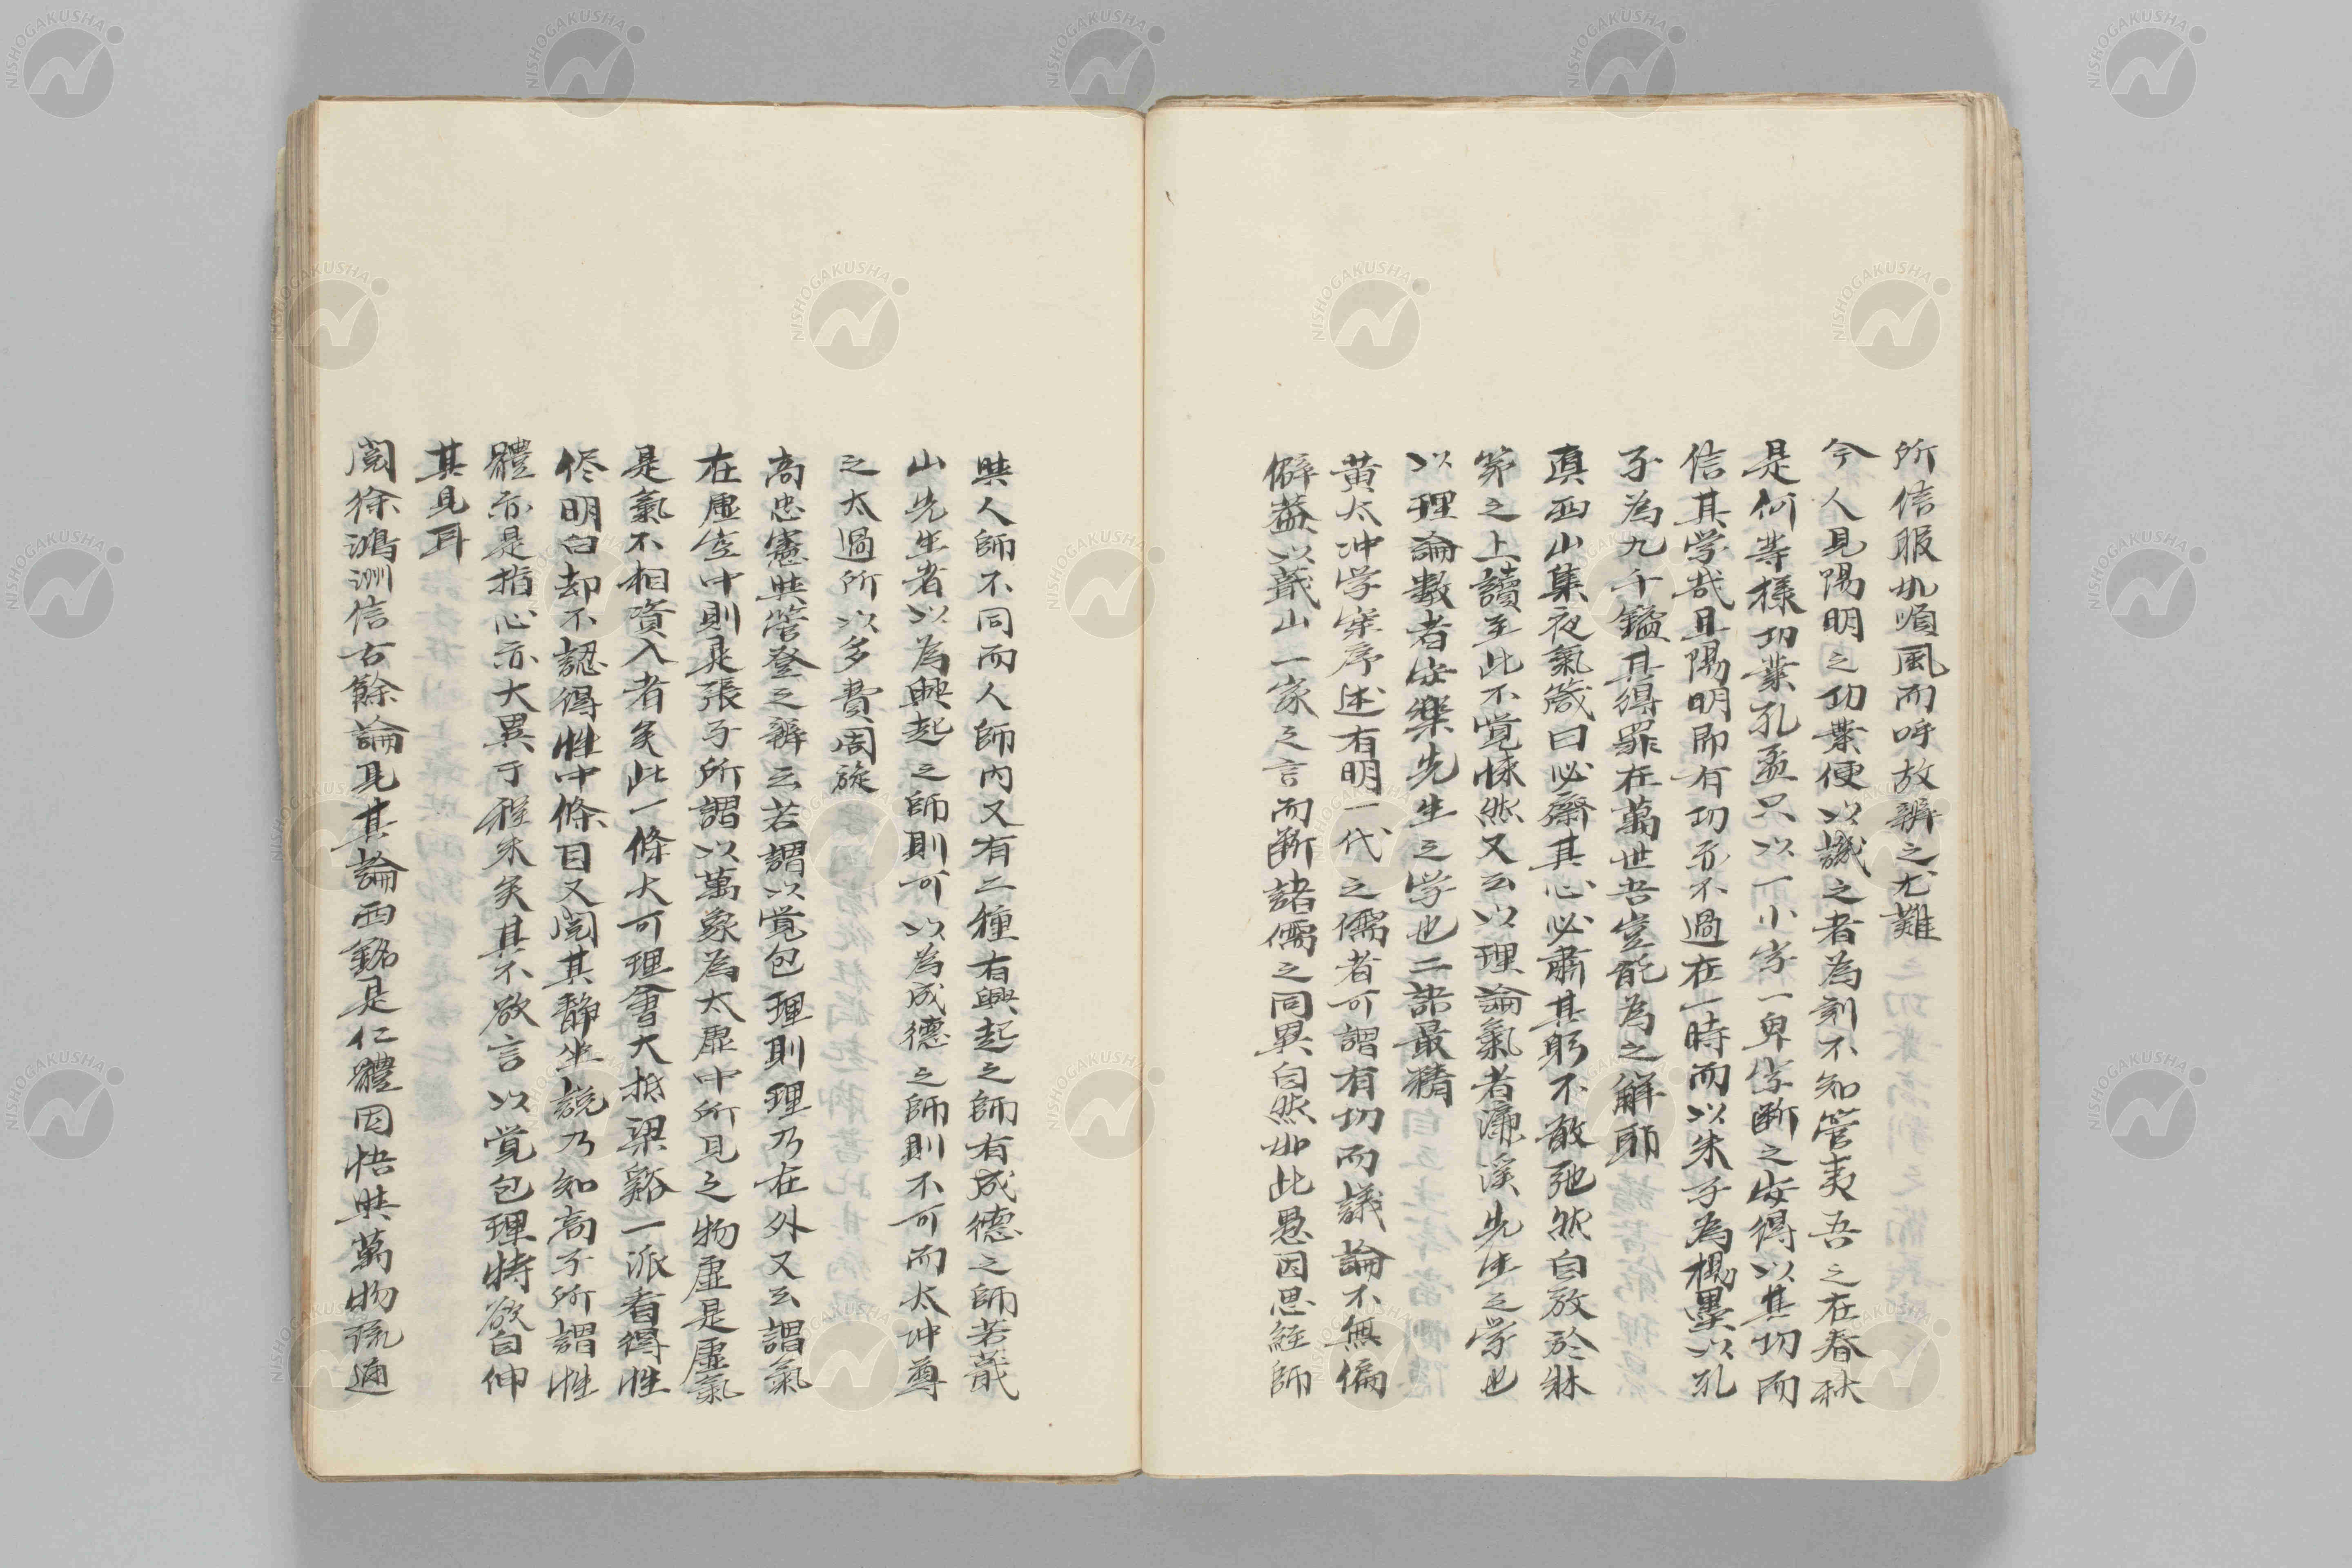 所信服如順風而呼故辨之尤難
今人見陽明之功業便以譏之者為刻不知管夷吾之在春秋
是何等樣功業孔孟只以一小字一卑字斷之安得以其功而
信其学哉且陽明即有功亦不過在一時而以朱子為楊墨以孔
子為九千鎰其得罪在萬世吾豈能為之解耶
真西山集夜氣箴曰必齋其心必肅其躬不敢弛然自放於牀
笫之上讀至此不覚悚然又云以理論氣者濂溪先生之学也
以理論數者安樂先生之学也二語最精
黄太冲学案序述有明一代之儒者可謂有功而議論不無偏
僻蓋以蕺山一家之言而断諸儒之同異自然如此愚因思経師
與人師不同而人師内又有二種有興起之師有成德之師若蕺
山先生者以為興起之師則可以為成德之師則不可而太冲尊
之太過所以多費周旋
高忠憲與管登之辨云若謂以覚包理則理乃在外又云謂氣
在虛空中則是張子所謂以萬象為太虛中所見之物虛是虛氣
是氣不相資入者矣此一條大可理會大抵梁谿一派看得性
侭明白却不認得性中條目又閲其静坐説乃知高子所謂性
體亦是指心亦大異于程朱矣其不欲言以覚包理特欲自伸
其見耳
閲徐鴻洲信古餘論見其論西銘是仁體因悟與萬物疏通